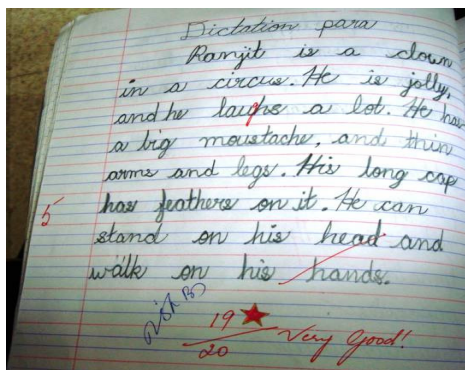 Dictation para
Ranjit is a clown
in a circus. He is jolly,
and he laughs a lot. He has
a big moustache, and thin
arms and legs. His long cap
5 has feathers on it. He can
stand on his head and
walk on his hands.
19
20
Very Good!